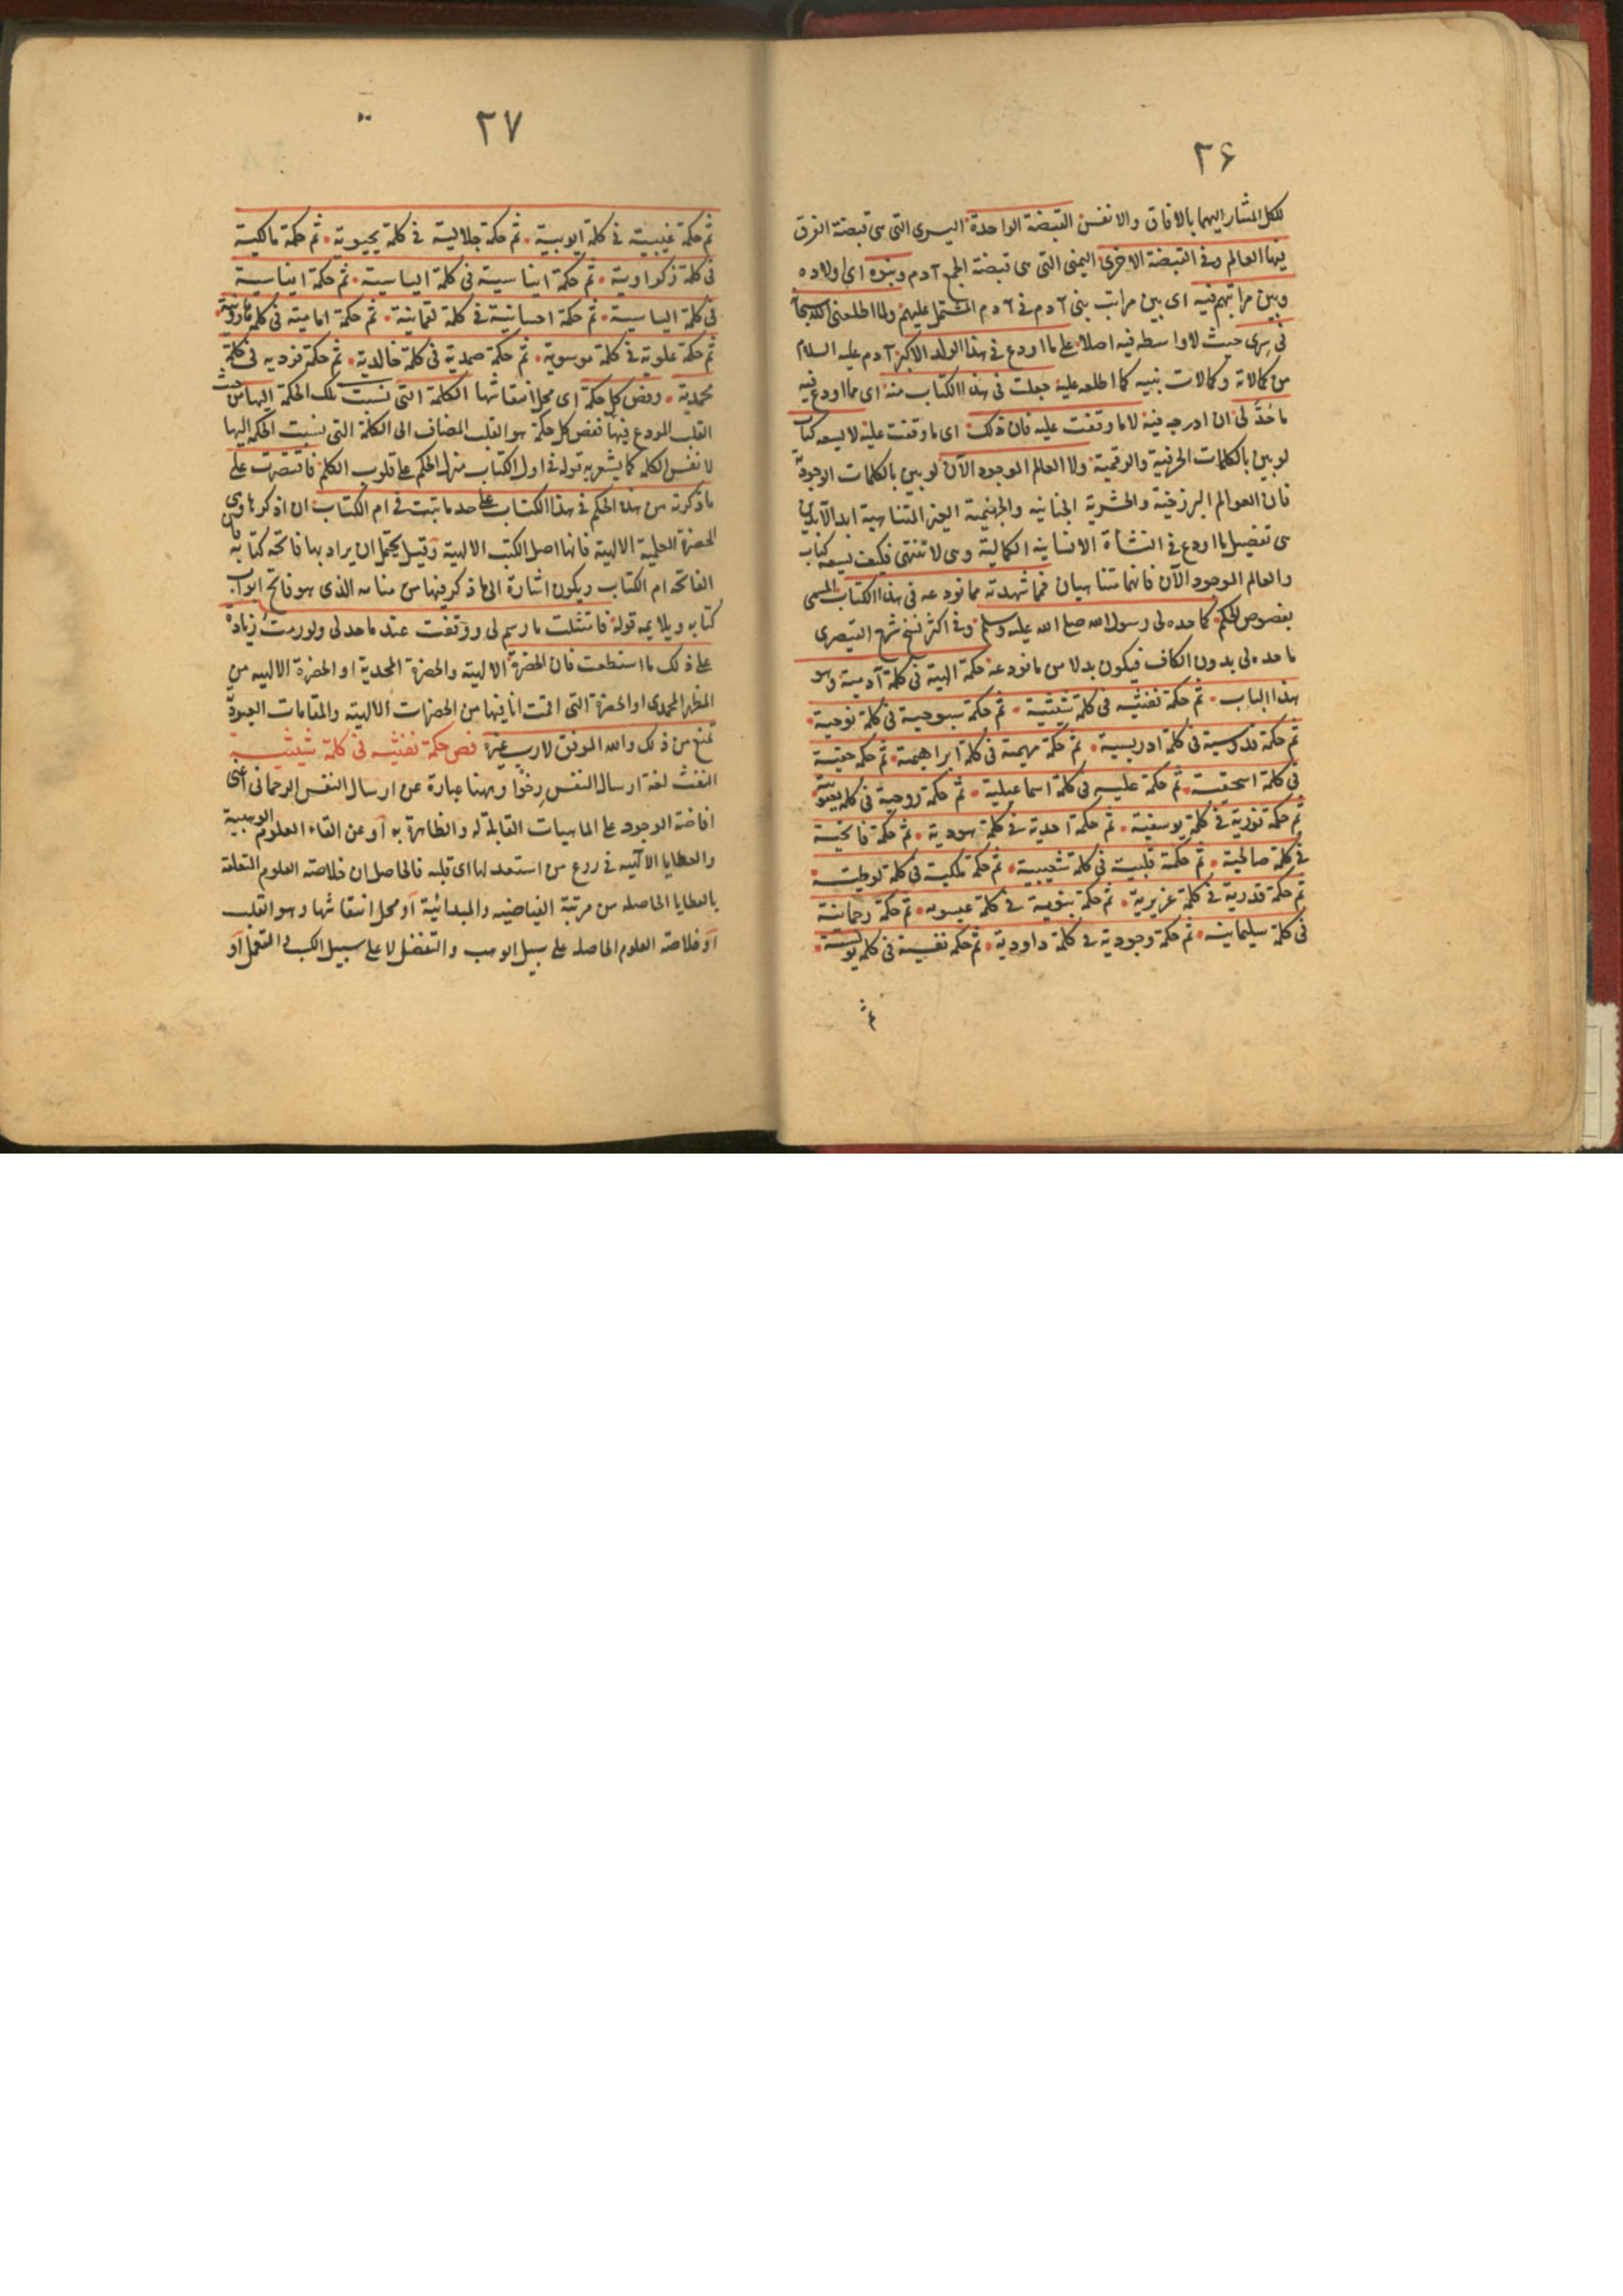 ٢٦
للكل المشار اليهما بالافاق والانفس القبضة الواحدة اليسرى التى هى قبضة الفرق
فيها العالم وفى القبضة الاخرى اليمنى التى هى قبضة الجمع آدم وبنوه اى اولاده
وبين مراتبهم فيه اى بين مراتب بنى آدم فى آدم المشتمل عليهم ولما اطلعنى الله سبحانه
فى سرى حيث لا واسطه فيه اصلا على ما اودع فى هذا الوالد الاكبر آدم عليه السلام
من كمالاته وكمالات بنيه كما اطلعه عليه جعلت فى هذا الكتاب منه اى مما اودع فيه
ما حُدَّ لى ان ادرجه فيه لا ما وقفت عليه فان ذلك اى ما وقفت عليه لا يسعه كتاب
لو بين بالكلمات الحرفية والرقمية ولا العالم الموجود الآن لو بين بالكلمات الوجودية
فان العوالم البرزخية والحشرية الجنانيه والجهنمية الغير المتناهية ابد الآبدين
هى تفصيل ما اودع فى النشأة الانسانيه الكمالية وهى لا تنتهى فكيف يسعه كتاب
والعالم الموجود الآن فانهما متناهيان فمما شهدته مما نودعه فى هذا الكتاب المسمى
بفصوص الحكم كما حده لى رسول الله صلى الله عليه وسلم وفى اكثر نسخ شرح القيصرى
ما حده لى بدون الكاف فيكون بدلا من ما نودعه حكمة الهية فى كلمة آدمية وهو
هذا الباب ثم حكمة نفثيه فى كلمة شيثية ثم حكمة سبوحية فى كلمة نوحية
ثم حكمة قدوسية فى كلمة ادريسية ثم حكمة مهيمة فى كلمة ابراهيمة ثم حكمة حقية
فى كلمة اسحقية ثم حكمة عليه فى كلمة اسماعيلية ثم حكمة روحية فى كلمة يعقوبية
ثم حكمة نورية فى كلمة يوسفية ثم حكمة احدية فى كلمة هودية ثم حكمة فاتحية
فى كلمة صالحية ثم حكمة قلبية فى كلمة شعيبية ثم حكمة ملكية فى كلمة لوطية
ثم حكمة قدرية فى كلمة عزيرية ثم حكمة نبوية فى كلمة عيسويه ثم حكمة رحمانية
فى كلمة سليمانيه ثم حكمة وجودية فى كلمة داودية ثم حكمة نفسية فى كلمة يونسية
ثم
٢٧
ثم حكمة غيبية فى كلمة ايوبية ثم حكمة جلالية فى كلمة يحيوية ثم حكمة مالكية
فى كلمة زكراوية ثم حكمة ايناسية فى كلمة الياسية ثم حكمة ايناسية
فى كلمة الياسية ثم حكمة احسانية فى كلمة لقمانية ثم حكمة امامية فى كلمة هارونية
ثم حكمة علوية فى كلمة موسوية ثم حكمة صمدية فى كلمة خالدية ثم حكمة فرديه فى كلمة
محمدية وفص كل حكمة اى محل انتقاشها الكلمة التى نسبت تلك الحكمة اليها من حيث
القلب المودع فيها ففص كل حكمة هو القلب المضاف الى الكلمة التى نسبت الحكمة اليها
لا نفس الكلمه كما يشعر به قوله فى اول الكتاب منزل الحكم على قلوب الكلم فاقتصرت على
ما ذكرته من هذه الحكم فى هذا الكتاب على حد ما ثبت فى ام الكتاب ان اذكرها وهى
الحضرة العلمية الالهية فانها اصل الكتب الالهية وقيل يحتمل ان يراد بها فاتحة كتابه فان
الفاتحه ام الكتاب ويكون اشارة الى ما ذكر فيها من منامه الذى هو فاتح ابواب
كتابه ويلايمه قوله فامتثلت ما رسم لى ووقفت عند ما حد لى ولو رمت زيادة
على ذلك ما استطعت فان الحضرة الالهية والحضرة المحمدية او الحضرة الالهيه من
المظهر المحمدى او الحضرة التى اقمت انا فيها من الحضرات الالهيه والمقامات العبودية
تمنع من ذلك والله الموفق لا رب غيره فص حكمة نفثيه فى كلمة شيثيه
النفث لغة ارسال النفس رخوا وههنا عبارة عن ارسال النفس الرحمانى اعنى
افاضة الوجود على الماهيات القابلة له والظاهرة به او عن القاء العلوم الوهبية
والعطايا الالهيه فى روع من استعد لها اى قلبه فالحاصل ان خلاصة العلوم المتعلقة
بالعطايا الحاصله من مرتبة الفياضيه والمبدائية او محل انتقاشها وهو القلب
او خلاصة العلوم الحاصله على سبيل الوهب والتفضل لا على سبيل الكسب والتعمل او